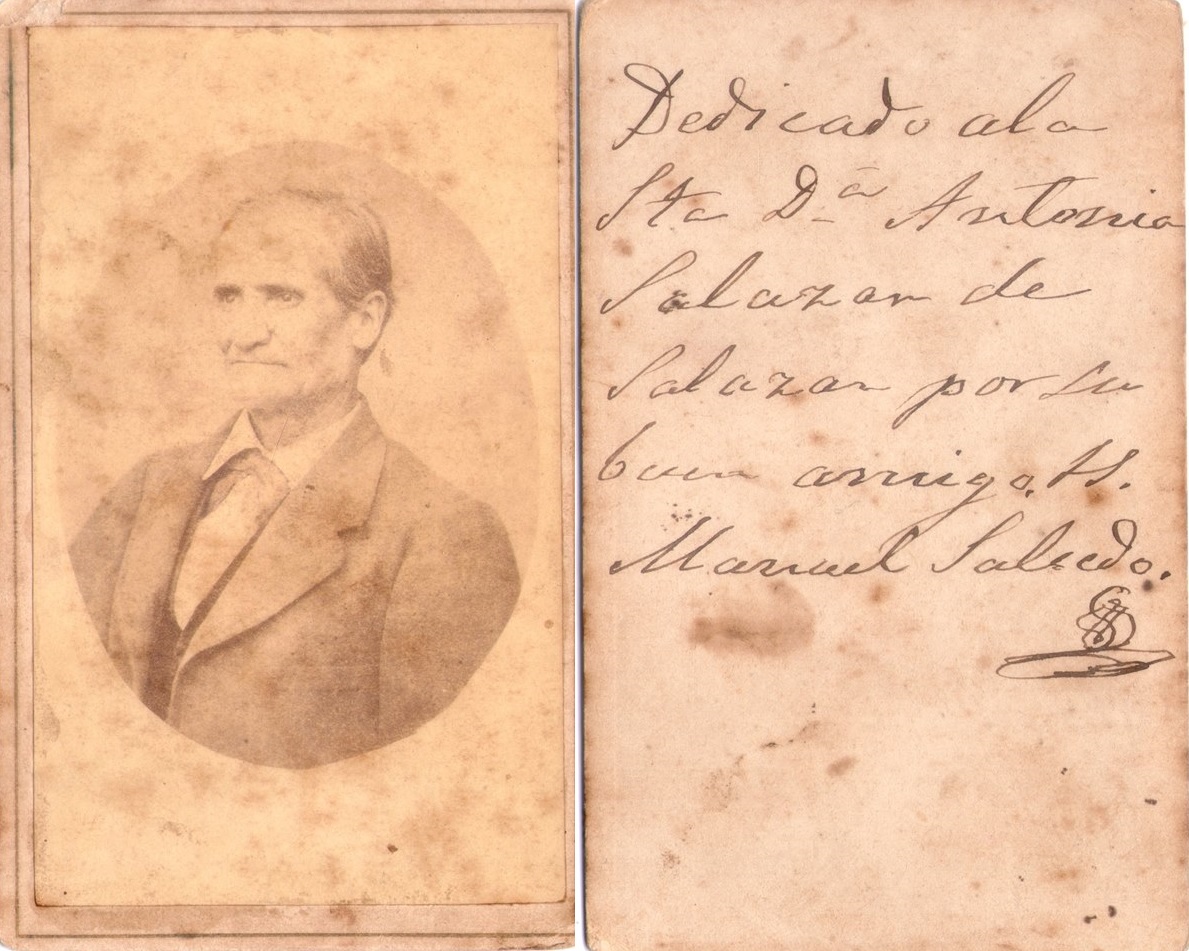 Dedicado ala
Sta Dª Antonia
Salazar de
Salazar por su
buen amigo.
Manuel Salcedo.